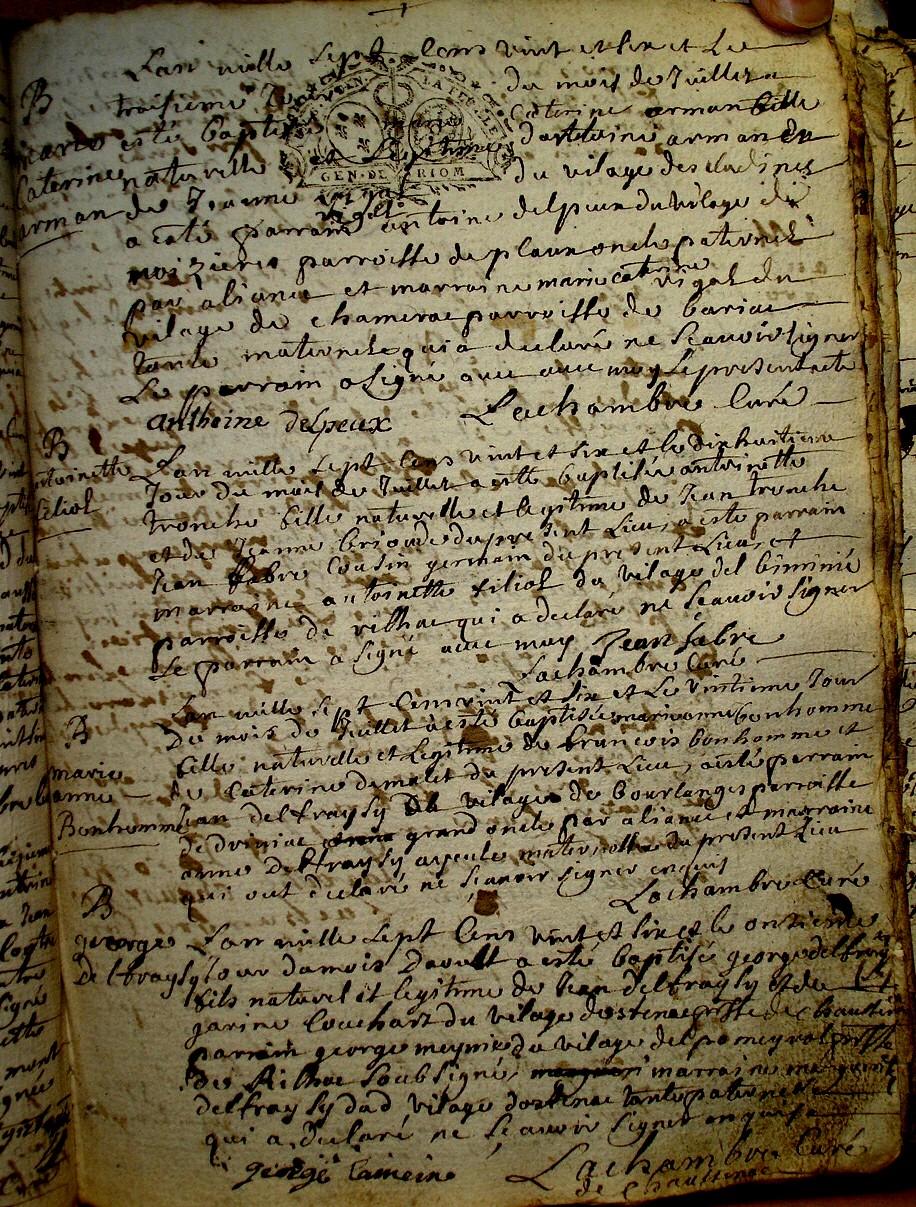 L'an mille sept cens vint et six et Le
B
troisieme Jour du mois de Juillet a
Marie esté baptisée Marie Caterine arman fille
Caterine naturelle et Legitime d'antoine arman et
arman de Jeanne vigal du vilage des
GEN. DE RIOM
a esté parrain antoine delpeux du vilage de
noizieres parroisse de pleaux oncle paternel
par aliance et marraine marie caterine vigal du
vilage de chamerac parroisse de bariac
tante maternelle qui a declaré ne scauoir signer
Le parrain a signé auec moy Le present acte
anthoine delpeux Lachambre Curé
B
antoinette L'an mille sept cens vint et six et le dix huitieme
Jour du mois de Juillet a esté baptisée antoinette
filiol
tronche fille naturelle et legitime de Jean tronche
et de Jeanne brioude du present Lieu, a esté parrain
Jean fabre Cousin germain du present Lieu, et
marraine antoinette filiol du vilage del
parroisse de rilhac qui a declaré ne scauoir signer
Le parrain a signé auec moy Jean fabre
Lachambre Curé
L'an mille sept cens vint et six et Le vintieme Jour
B
du mois de Juillet a esté baptisée marianne bonhomme
fille naturelle et Legitime de francois bonhomme et
marie
de Caterine demalet du present Lieu, a esté parrain
anne
Jean delfraysy du vilage de bourlanges parroisse
Bonhomme
de driniac grand oncle par aliance et marraine
anne delfraysy ayeule maternelle du present Lieu
qui ont declaré ne scauoir signer enquis
Lachambre Curé
B
george L'an mille sept cens vint et six et le onzieme
delfraysy Jour du mois d'aoust a esté baptisé george delfraysy
fils naturel et legitime de Jean delfraysy et de
garine Couchart du vilage d'ostenac prsse de chaussenac
parrain george meynie du vilage del pomeyrol prsse
de Rilhac soubsigné, marraine marguerite
delfraysy dud vilage dostenac tante paternelle
qui a declaré ne scauoir signer enquise
george Lachambre Curé
de chaussenac